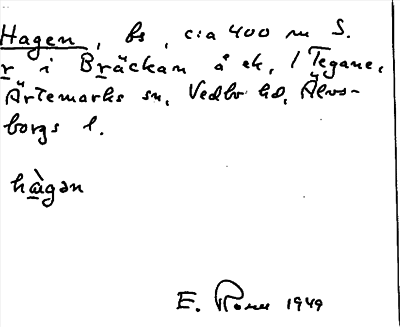 Hagen, bs, c:a 400 m S.
r i Bräckan å ek. 1 Tegane,
Ärtemarks sn, Vedbo hd, Älvs-
borgs l.
hàgən
E. Rosen 1949